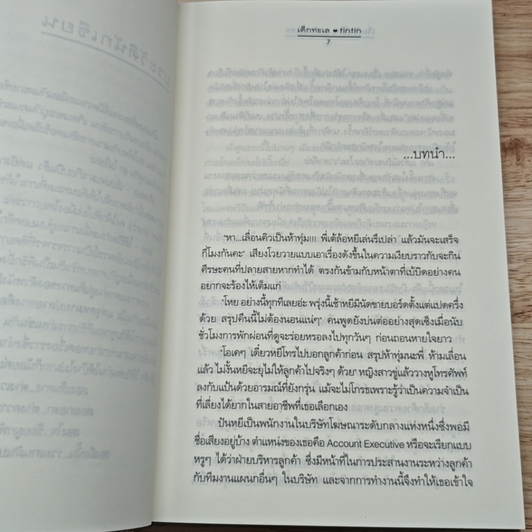 เด็กทะเล ♥ tintin
7
...บทนำ...
"หา...เลื่อนคิวเป็นห้าทุ่ม!!! พี่เต้ล้อหยีเล่นรึเปล่า แล้วมันจะเสร็จ
กี่โมงกันคะ" เสียงโวยวายแบบเอาเรื่องดังขึ้นในความเงียบราวกับจะกิน
ศีรษะคนที่ปลายสายหากทำได้ ตรงกันข้ามกับหน้าตาที่เบ้บิดอย่างคน
อยากจะร้องไห้เต็มแก่
"โหย อย่างนี้ทุกทีเลยอ่ะ พรุ่งนี้เช้าหยีมีนัดขายบอร์ดตั้งแต่แปดครึ่ง
ด้วย สรุปคืนนี้ไม่ต้องนอนแน่ๆ" คนพูดยังบ่นต่ออย่างสุดเซ็งเมื่อนับ
ชั่วโมงการพักผ่อนที่ดูจะร่อยหรอลงไปทุกวันๆ ก่อนถอนหายใจยาว
"โอเคๆ เดี๋ยวหยีโทรไปบอกลูกค้าก่อน สรุปห้าทุ่มนะพี่ ห้ามเลื่อน
แล้ว ไม่งั้นหยีจะยุไม่ให้ลูกค้าไปจริงๆ ด้วย" หญิงสาวขู่แล้ววางหูโทรศัพท์
ลงกับแป้นด้วยอารมณ์ที่ยังกรุ่น แม้จะไม่โกรธเพราะรู้ว่าเป็นความจำเป็น
ที่เลี่ยงได้ยากในสายอาชีพที่เธอเลือกเอง
ปันหยีเป็นพนักงานในบริษัทโฆษณาระดับกลางแห่งหนึ่งซึ่งพอมี
ชื่อเสียงอยู่บ้าง ตำแหน่งของเธอคือ Account Executive หรือจะเรียกแบบ
หรูๆ ได้ว่าฝ่ายบริหารลูกค้า ซึ่งมีหน้าที่ในการประสานงานระหว่างลูกค้า
กับทีมงานแผนกอื่นๆ ในบริษัท และจากการทำงานนี้จึงทำให้เธอเข้าใจ